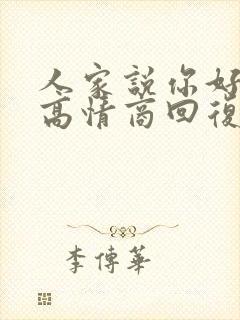 人家説你好
高情商回復
李傳華